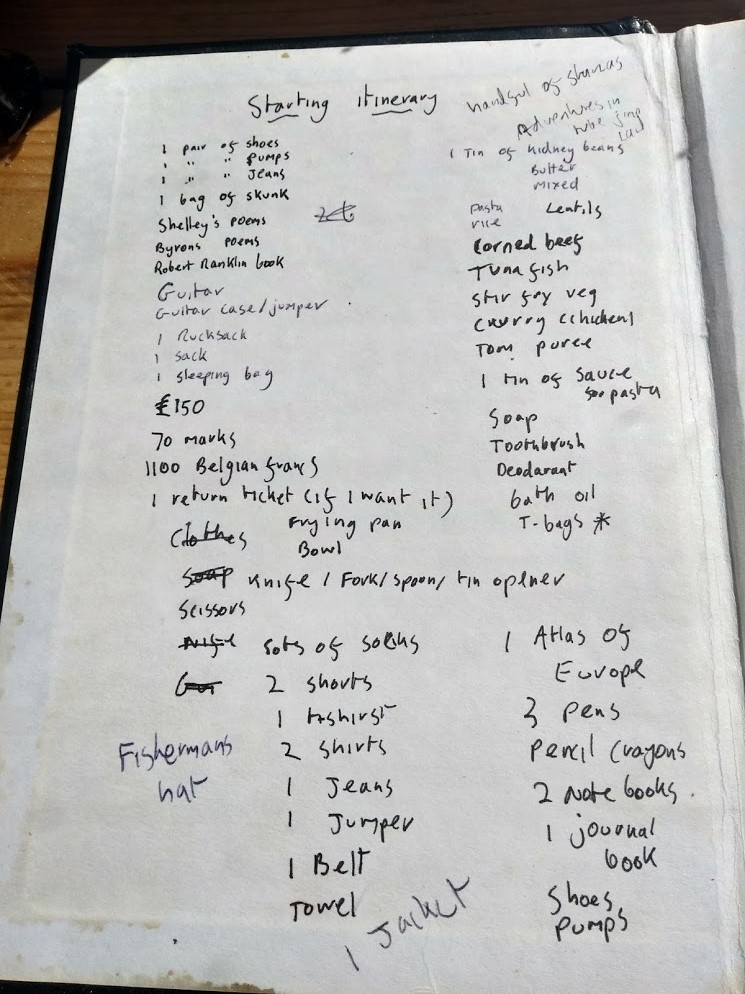 Starting itinerary
handful of stanzas
Adventures in
tube
1 pair of shoes
1 " " pumps
1 " " Jeans
1 bag of skunk
Shelley's poems
Byrons poems
Robert Ranklin book
Guitar
Guitar case/jumper
1 Rucksack
1 sack
1 sleeping bag
£150
70 marks
1100 Belgian francs
1 return ticket (if I want it)
1 Tin of kidney beans
Butter
mixed
pasta Lentils
rice
Corned beef
Tuna fish
stir fry veg
Curry (chicken)
Tom puree
1 tin of sauce
for pasta
Soap
Toothbrush
Deodarant
bath oil
T-bags *
Clothes Frying pan
Bowl
Soap Knife / Fork / Spoon / tin opener
Scissors
Knife Lots of socks
2 shorts
1 t-shirst
2 shirts
1 Jeans
1 Jumper
1 Belt
Towel
Fishermans
hat
1 Jacket
1 Atlas of
Europe
3 pens
Pencil Crayons
2 Note books.
1 journal
book
Shoes
Pumps